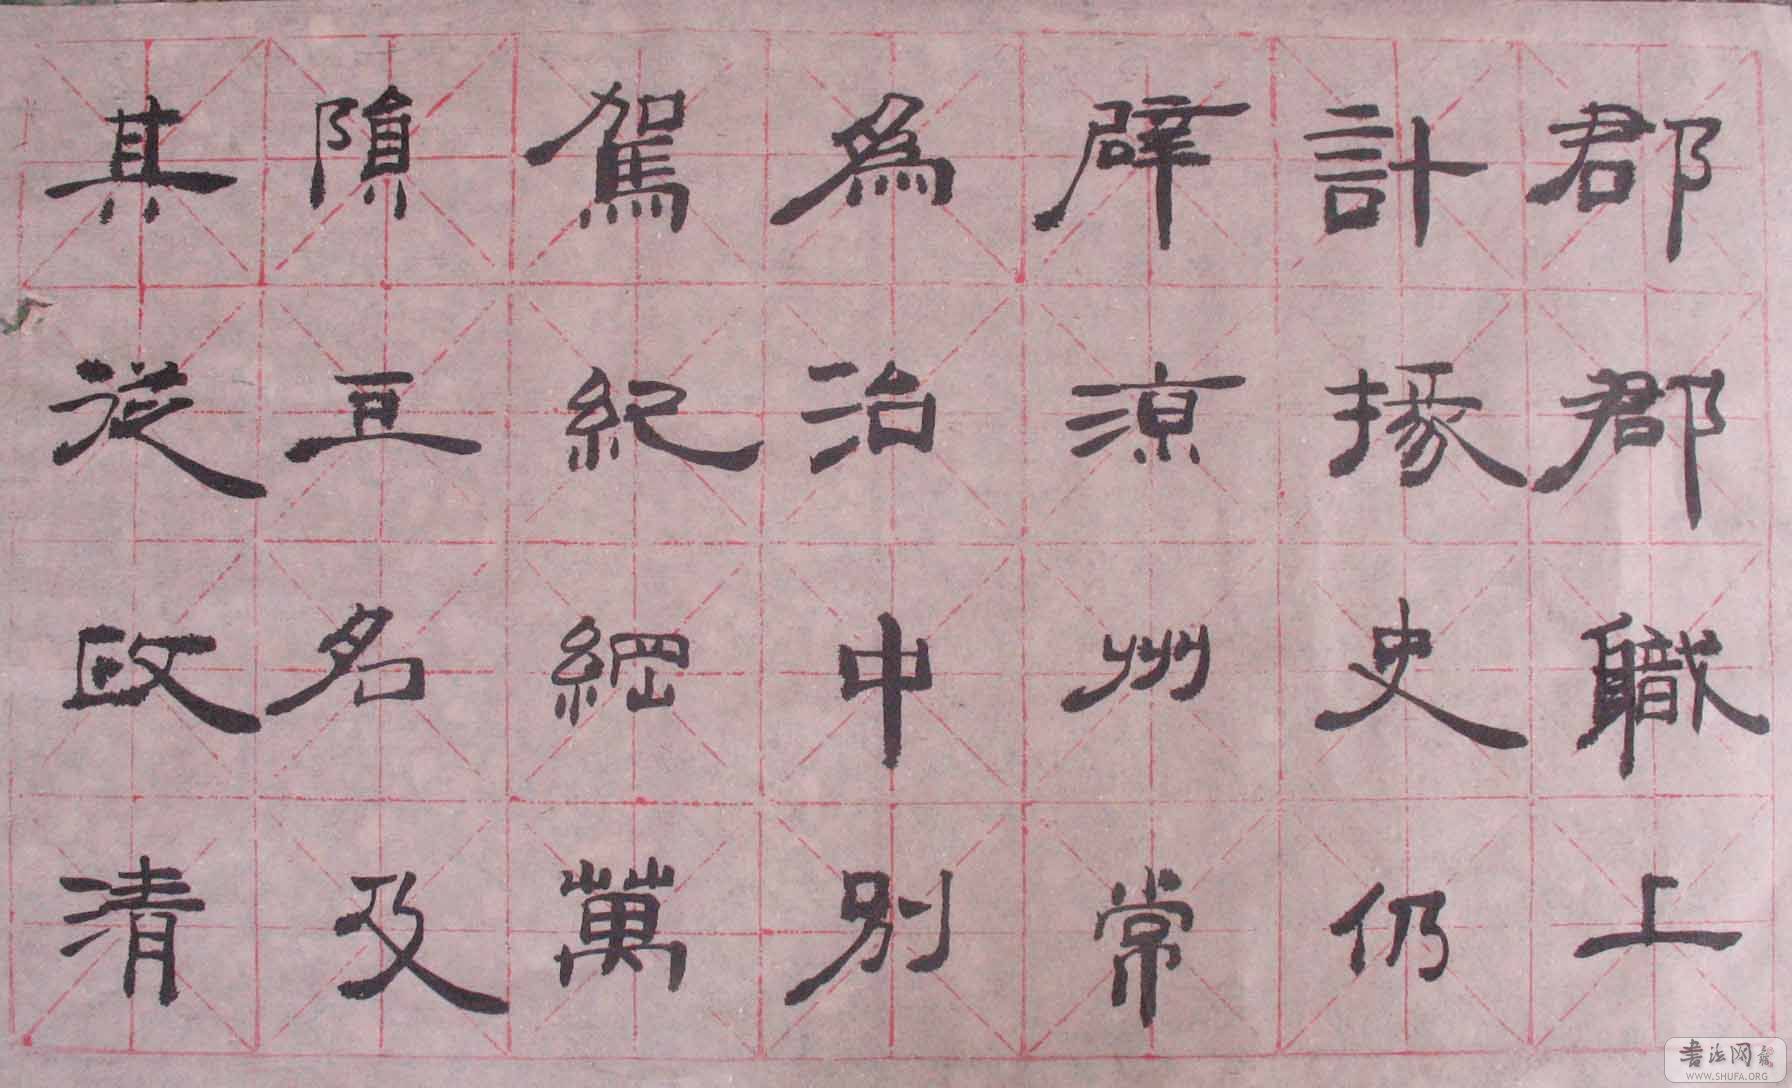 郡郡職上
計掾史仍
辟涼州常
為治中別
駕紀綱萬
隕名及
其從政清
書法网
WWW.SHUFA.ORG